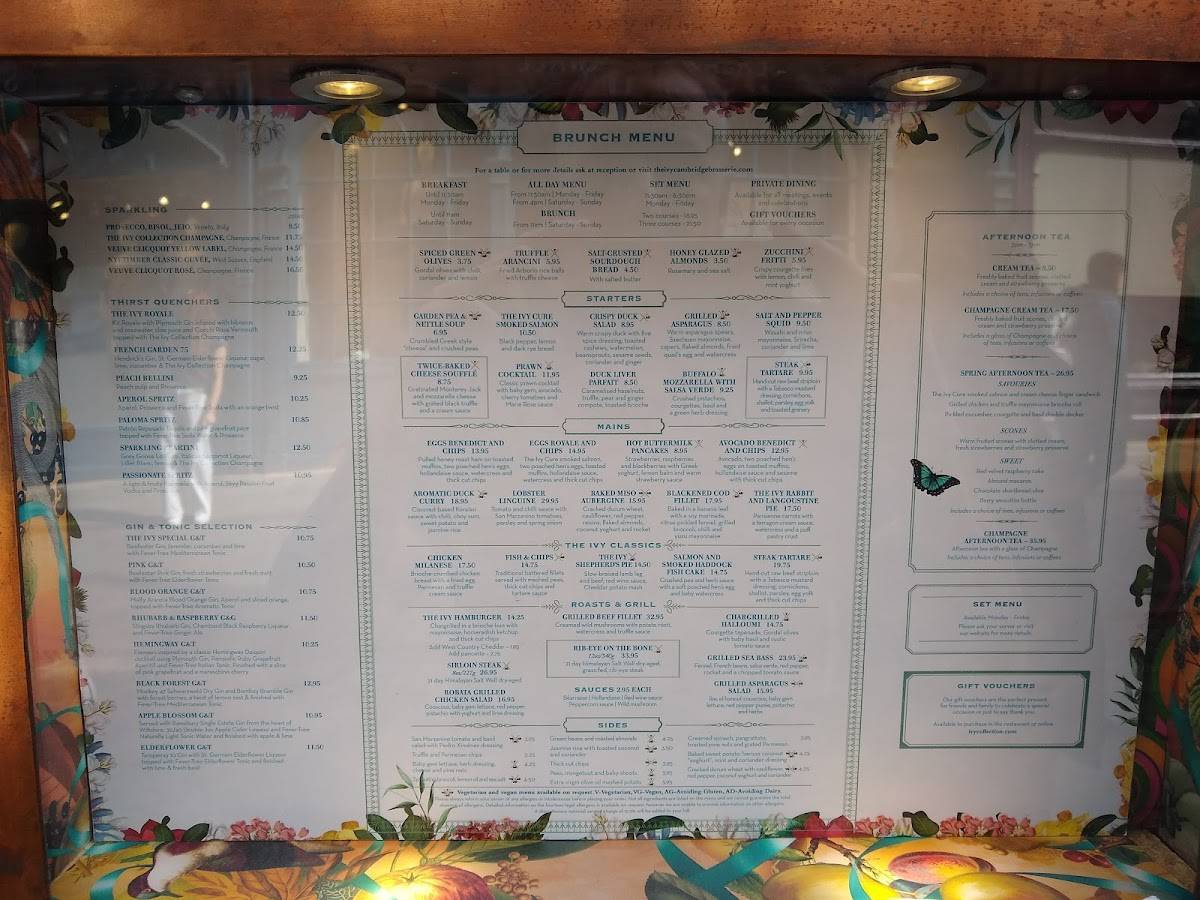 BRUNCH MENU
For a table or for more details ask at reception or visit theivycambridgebrasserie.com
BREAKFAST
Until 11.30am
Monday - Friday
Until 11am
Saturday - Sunday
ALL DAY MENU
From 11.30am | Monday - Friday
From 4pm | Saturday - Sunday
BRUNCH
From 11am | Saturday - Sunday
SET MENU
11.30am - 6.30pm
Monday - Friday
Two courses - 16.95
Three courses - 21.50
PRIVATE DINING
Available for all meetings, events
and celebrations
GIFT VOUCHERS
Available for every occasion
SPARKLING
PROSECCO, BISOL, JEIO, Veneto, Italy
THE IVY COLLECTION CHAMPAGNE, Champagne, France 11.75
VEUVE CLICQUOT YELLOW LABEL, Champagne, France 14.50
NYETIMBER CLASSIC CUVÉE, West Sussex, England 14.50
VEUVE CLICQUOT ROSÉ, Champagne, France 16.50
THIRST QUENCHERS
THE IVY ROYALE 12.50
Kir Royale with Plymouth Gin infused with hibiscus
and rosewater, sloe juice and Cocchi Rosa Vermouth
topped with The Ivy Collection Champagne
FRENCH GARDEN 75 12.25
Hendrick's Gin, St. Germain Elderflower Liqueur, sugar,
lime, cucumber & The Ivy Collection Champagne
PEACH BELLINI 9.25
Peach pulp and Prosecco
APEROL SPRITZ 10.25
Aperol, Prosecco and Fever-Tree Soda with an orange twist
PALOMA SPRITZ 10.85
tapped with Fever-Tree Soda Water & Prosecco
SPARKLING MARTINI 12.50
PASSIONATE SPRITZ 10.95
GIN & TONIC SELECTION
THE IVY SPECIAL G&T 10.75
Beefeater Gin, lavender, cucumber and lime
with Fever-Tree Mediterranean Tonic
PINK G&T 10.50
Beefeater Pink Gin, fresh strawberries and fresh mint
with Fever-Tree Elderflower Tonic
BLOOD ORANGE G&T 10.75
Malfy Arancia Blood Orange Gin, Aperol and sliced orange,
topped with Fever-Tree Aromatic Tonic
RHUBARB & RASPBERRY G&G 11.50
Slingsby Rhubarb Gin, Chambord Black Raspberry Liqueur
and Fever-Tree Ginger Ale
HEMINGWAY G&T 10.25
Flavours inspired by a classic Hemingway Daiquiri
cocktail using Plymouth Gin, Pampelle Ruby Grapefruit
Aperitif and Fever-Tree Italian Tonic. Finished with a slice
of pink grapefruit and a maraschino cherry
BLACK FOREST G&T 12.95
Monkey 47 Schwarzwald Dry Gin and Bombay Bramble Gin
with forest berries, a hint of lemon and finished with
Fever-Tree Mediterranean Tonic
APPLE BLOSSOM G&T 10.95
Served with Ramsbury Single Estate Gin from the heart of
Wiltshire, Jules Double Jus Apple Cider Liqueur and Fever-Tree
Naturally Light Tonic Water and finished with apple & lime
ELDERFLOWER G&T 11.50
Tanqueray 10 Gin with St. Germain Elderflower Liqueur
topped with Fever-Tree Elderflower Tonic and finished
with lime & fresh basil
SPICED GREEN OLIVES 3.75
Gordal olives with chilli,
coriander and lemon
TRUFFLE ARANCINI 5.95
Fried Arborio rice balls
with truffle cheese
SALT-CRUSTED SOURDOUGH BREAD 4.50
With salted butter
HONEY GLAZED ALMONDS 3.50
Rosemary and sea salt
ZUCCHINI FRITTI 5.95
Crispy courgette fries
with lemon, chilli and
mint yoghurt
STARTERS
GARDEN PEA & NETTLE SOUP 6.95
Crumbled Greek style
"cheese" and crushed peas
THE IVY CURE SMOKED SALMON 10.50
Black pepper, lemon
and dark rye bread
CRISPY DUCK SALAD 8.95
Warm crispy duck with five
spice dressing, toasted
cashews, watermelon,
beansprouts, sesame seeds,
coriander and ginger
GRILLED ASPARAGUS 8.50
Warm asparagus spears,
Szechuan mayonnaise,
capers, flaked almonds, fried
quail's egg and watercress
SALT AND PEPPER SQUID 9.50
Wasabi and miso
mayonnaise, Sriracha,
coriander and lime
TWICE-BAKED CHEESE SOUFFLÉ 8.75
Gratinated Monterey Jack
and mozzarella cheese
with grilled black truffle
and a cream sauce
PRAWN COCKTAIL 11.95
Classic prawn cocktail
with baby gem, avocado,
cherry tomatoes and
Marie Rose sauce
DUCK LIVER PARFAIT 8.50
Caramelised hazelnuts,
truffle, pear and ginger
compote, toasted brioche
BUFFALO MOZZARELLA WITH SALSA VERDE 9.25
Crushed pistachios,
courgettes, basil and
a green herb dressing
STEAK TARTARE 9.95
Hand-cut raw beef striploin
with a Tabasco mustard
dressing, cornichons,
shallot, parsley, egg yolk
and toasted granary
MAINS
EGGS BENEDICT AND CHIPS 13.95
Pulled honey roast ham on toasted
muffins, two poached hen's eggs,
hollandaise sauce, watercress and
thick cut chips
EGGS ROYALE AND CHIPS 14.95
The Ivy Cure smoked salmon,
two poached hen's eggs, toasted
muffins, hollandaise sauce,
watercress and thick cut chips
HOT BUTTERMILK PANCAKES 8.95
Strawberries, raspberries
and blackberries with Greek
yoghurt, lemon balm and warm
strawberry sauce
AVOCADO BENEDICT AND CHIPS 12.95
Avocado, two poached hen's
eggs on toasted muffins,
hollandaise and sesame
with thick cut chips
AROMATIC DUCK CURRY 18.95
Coconut based Keralan
sauce with chilli, choy sum,
sweet potato and
jasmine rice
LOBSTER LINGUINE 29.95
Tomato and chilli sauce with
San Marzanino tomatoes,
parsley and spring onion
BAKED MISO AUBERGINE 15.95
Cracked durum wheat,
cauliflower, red pepper,
raisins, flaked almonds,
coconut yoghurt and rocket
BLACKENED COD FILLET 17.95
Baked in a banana leaf
with a soy marinade,
citrus pickled fennel, grilled
broccoli, chilli and
yuzu mayonnaise
THE IVY RABBIT AND LANGOUSTINE PIE 17.50
Parisienne carrots with
a tarragon cream sauce,
watercress and a puff
pastry crust
THE IVY CLASSICS
CHICKEN MILANESE 17.50
Brioche-crumbed chicken
breast with a fried egg,
Parmesan and truffle
cream sauce
FISH & CHIPS 14.75
Traditional battered fillets
served with mashed peas,
thick cut chips and
tartare sauce
THE IVY SHEPHERD'S PIE 14.50
Slow-braised lamb leg
and beef, red wine sauce,
Cheddar potato mash
SALMON AND SMOKED HADDOCK FISH CAKE 14.75
Crushed pea and herb sauce
with a soft poached hen's egg
and baby watercress
STEAK TARTARE 19.75
Hand-cut raw beef striploin
with a Tabasco mustard
dressing, cornichons,
shallot, parsley, egg yolk
and thick cut chips
ROASTS & GRILL
THE IVY HAMBURGER 14.25
Chargrilled in a brioche bun with
mayonnaise, horseradish ketchup
and thick cut chips
Add West Country Cheddar - 1.95
Add pancetta - 2.75
SIRLOIN STEAK
8oz/227g 26.95
21 day Himalayan Salt Wall dry-aged
ROBATA GRILLED CHICKEN SALAD 16.95
Couscous, baby gem lettuce, red pepper,
pistachio with yoghurt and lime dressing
GRILLED BEEF FILLET 32.95
Creamed wild mushrooms with potato rösti,
watercress and truffle sauce
RIB-EYE ON THE BONE
12oz/340g 33.95
21 day Himalayan Salt Wall dry-aged,
grass fed, rib-eye steak
SAUCES 2.95 EACH
Béarnaise | Hollandaise | Red wine sauce
Peppercorn sauce | Wild mushroom
CHARGRILLED HALLOUMI 14.75
Courgette tapenade, Gordal olives
with baby basil and rustic
tomato sauce
GRILLED SEA BASS 23.95
Fennel, French beans, salsa verde, red pepper,
rocket and a chopped tomato sauce
GRILLED ASPARAGUS SALAD 15.95
Ras el hanout couscous, baby gem
lettuce, red pepper purée, pistachio
and herbs
SIDES
San Marzanino tomato and basil
salad with Pedro Ximénez dressing 3.95
Truffle and Parmesan chips 5.25
Baby gem lettuce, herb dressing,
cheese and pine nuts 4.25
Sprouting broccoli, lemon oil and sea salt 4.50
Green beans and roasted almonds 4.75
Jasmine rice with toasted coconut
and coriander 3.50
Thick cut chips 3.95
Peas, mangetout and baby shoots 3.95
Extra virgin olive oil mashed potato 3.95
Creamed spinach, pangrattato,
toasted pine nuts and grated Parmesan 3.95
Baked sweet potato, harissa coconut
"yoghurt", mint and coriander dressing 4.75
Cracked durum wheat with cauliflower,
red pepper, coconut yoghurt and coriander 4.75
Vegetarian and vegan menu available on request. V-Vegetarian, VG-Vegan, AG-Avoiding Gluten, AD-Avoiding Dairy.
AFTERNOON TEA
3pm - 5pm
CREAM TEA – 8.50
Freshly baked fruit scones, clotted
cream and strawberry preserve
Includes a choice of teas, infusions or coffees
CHAMPAGNE CREAM TEA – 17.50
Freshly baked fruit scones, clotted
cream and strawberry preserve
Includes a glass of Champagne and a choice
of teas, infusions or coffees
SPRING AFTERNOON TEA – 26.95
SAVOURIES
The Ivy Cure smoked salmon and cream cheese finger sandwich
Grilled chicken and truffle mayonnaise brioche roll
Pickled cucumber, courgette and basil double decker
SCONES
Warm fruited scones with clotted cream,
fresh strawberries and strawberry preserve
SWEET
Red velvet raspberry cake
Almond macaron
Chocolate shortbread slice
Berry smoothie bottle
Includes a choice of teas, infusions or coffees
CHAMPAGNE
AFTERNOON TEA – 35.95
Afternoon tea with a glass of Champagne
Includes a choice of teas, infusions or coffees
SET MENU
Available Monday - Friday
Please ask your server or visit
our website for more details.
GIFT VOUCHERS
Our gift vouchers are the perfect present
for friends and family to celebrate a special
occasion or just to say thank you.
Available to purchase in the restaurant or online
ivycollection.com